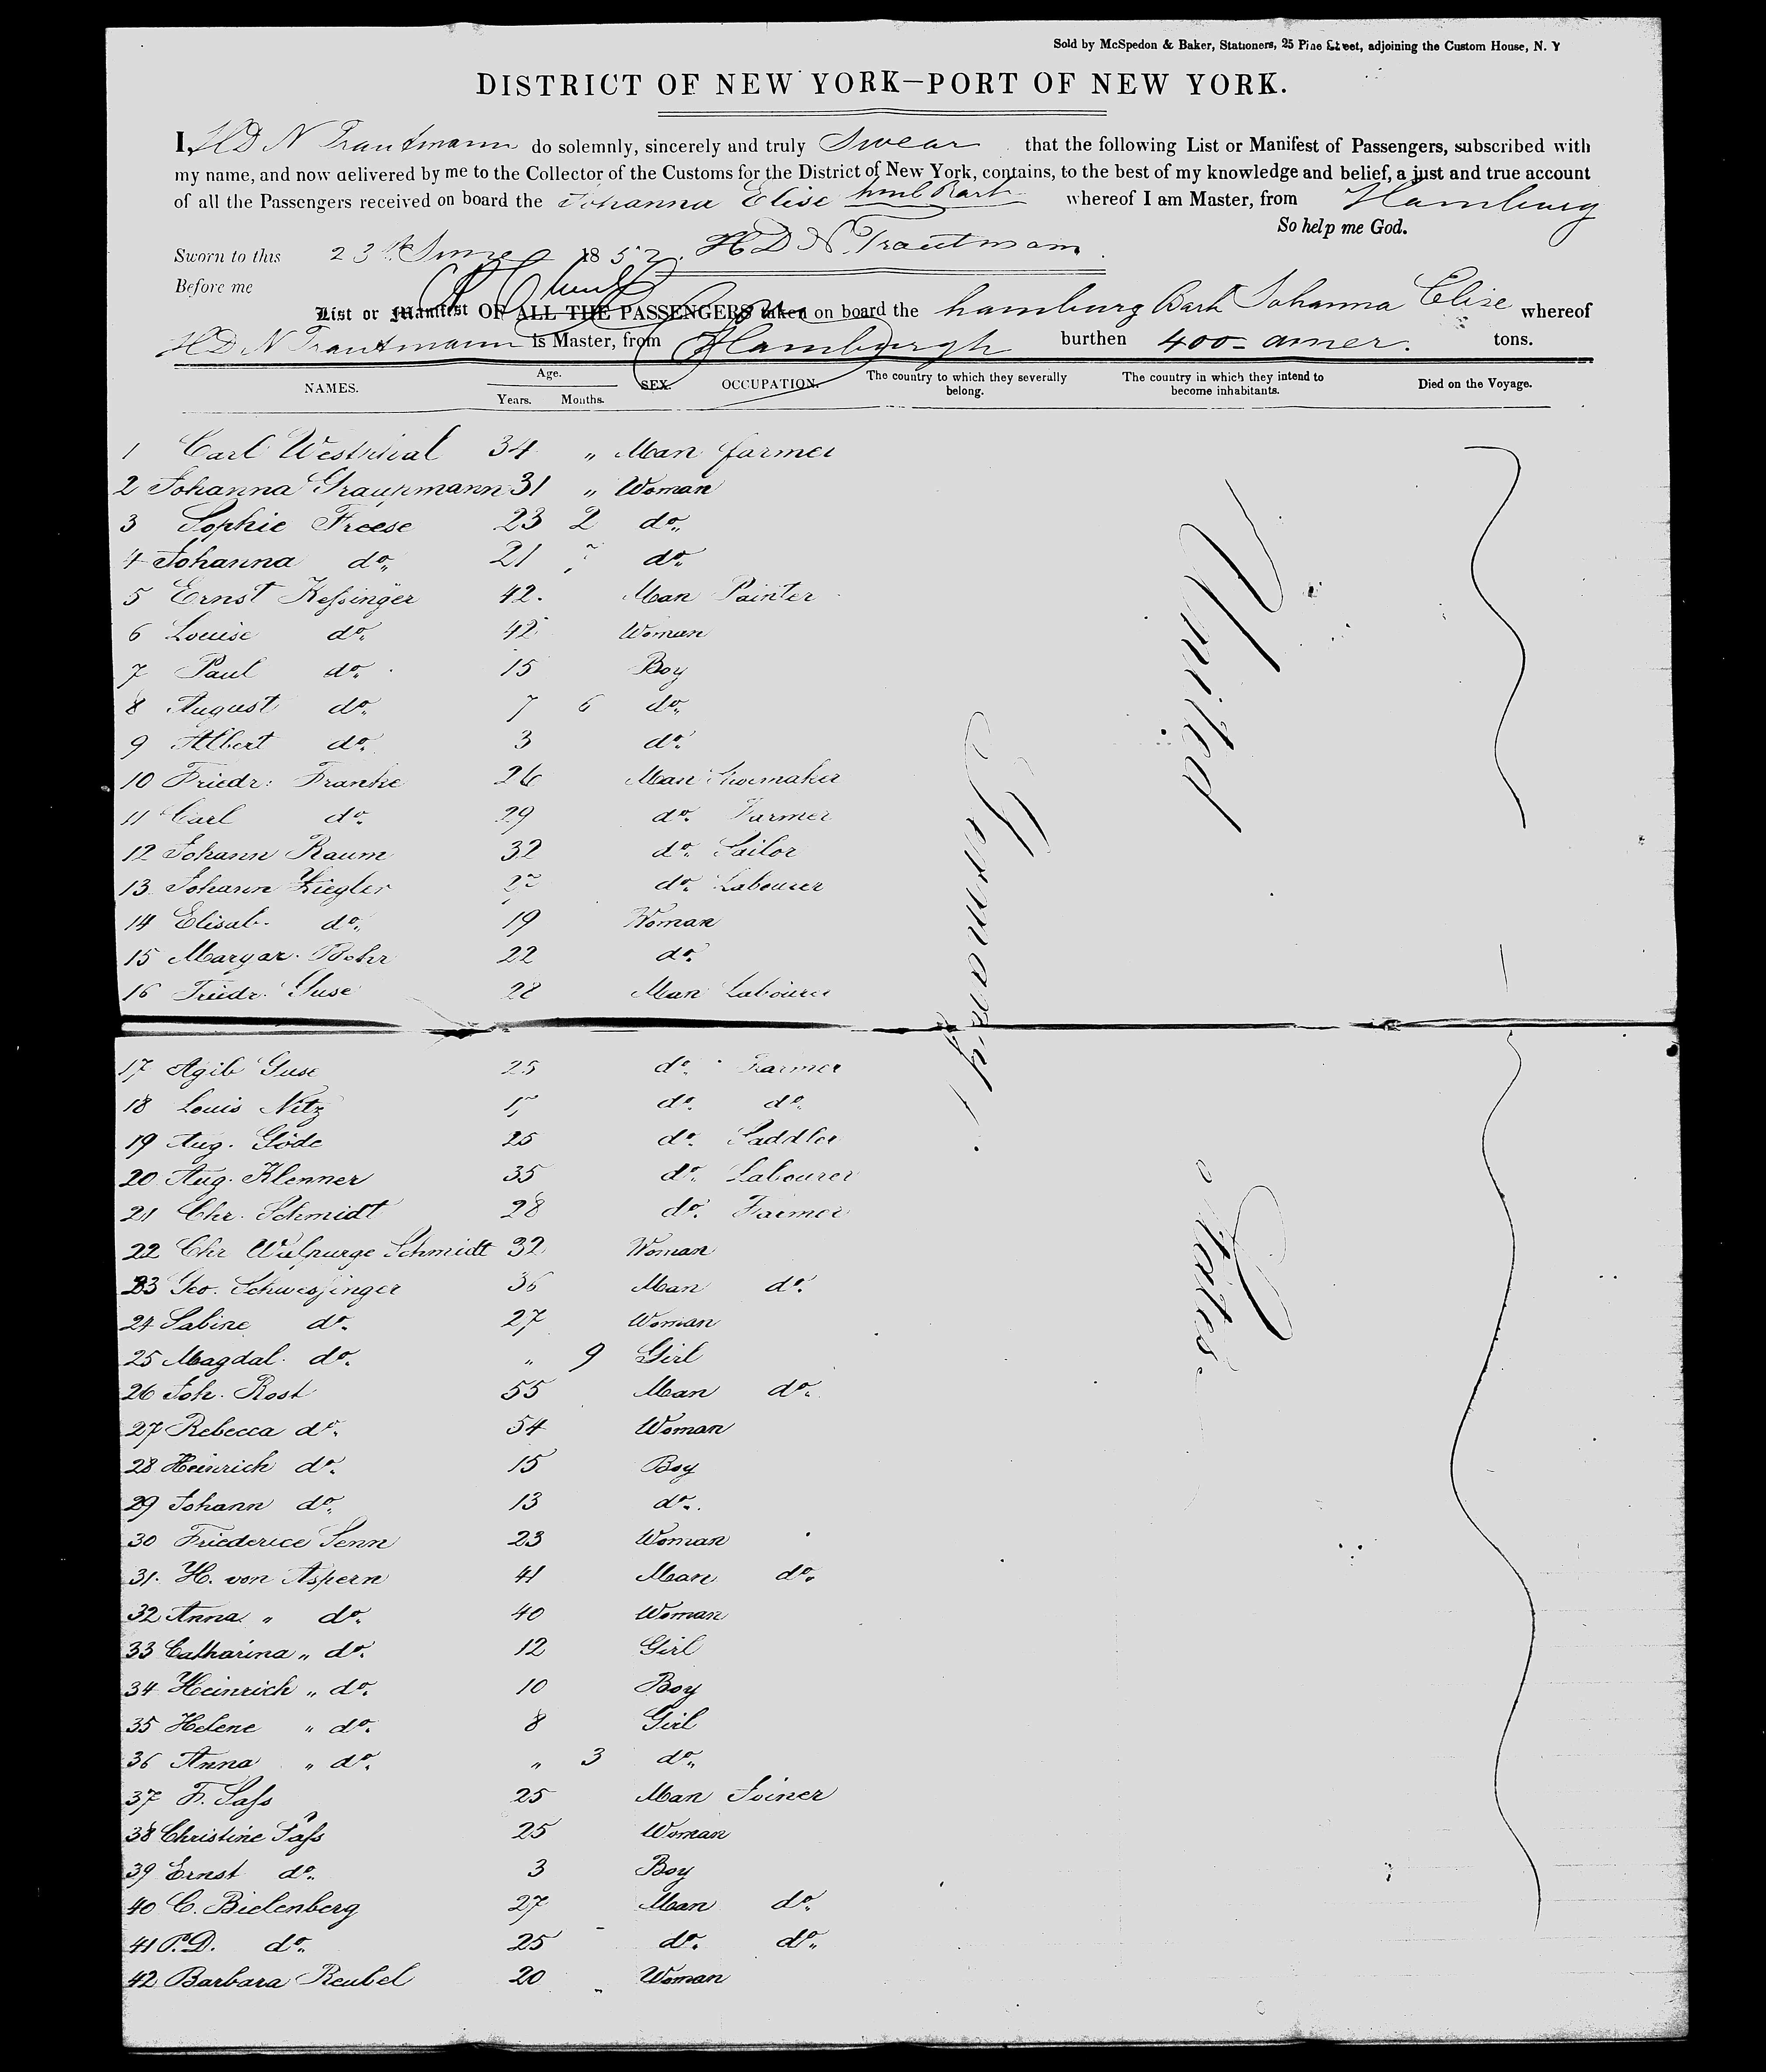 Sold by McSpedon & Baker, Stationers, 25 Pine Street, adjoining the Custom House, N. Y
DISTRICT OF NEW YORK—PORT OF NEW YORK.
I, H D N Trautmann do solemnly, sincerely and truly Swear that the following List or Manifest of Passengers, subscribed with
my name, and now delivered by me to the Collector of the Customs for the District of New York, contains, to the best of my knowledge and belief, a just and true account
of all the Passengers received on board the Johanna Elise hmb Bark whereof I am Master, from Hamburg
So help me God.
Sworn to this 23 June 1852. H D N Trautmann
Before me
List or Manifest OF ALL THE PASSENGERS taken on board the hamburg Bark Johanna Elise whereof
H D N Trautmann is Master, from Hamburgh burthen 400 - amer. tons.
NAMES. Age. Years. Months. SEX. OCCUPATION. The country to which they severally belong. The country in which they intend to become inhabitants. Died on the Voyage.
1 Carl Westphal 34 " Man farmer
2 Johanna Graupmann 31 " Woman
3 Sophie Freese 23 2 do.
4 Johanna do. 21 do.
5 Ernst Kessinger 42. Man Painter
6 Louise do. 42 Woman
7 Paul do. 15 Boy
8 August do. 7 6 do.
9 Albert do. 3 do.
10 Friedr: Franke 26 Man Shoemaker
11 Carl do. 29 do. Farmer
12 Johann Raum 32 do. Sailor
13 Johann Ziegler do. Labourer
14 Elisab. do. 19 Woman
15 Margar. Bohr 22 do.
16 Friedr. Guse 28 Man Labourer
17 Agib Guse 25 do. Farmer
18 Louis Nitz 17 do. do.
19 Aug. Göde 25 do. Saddler
20 Aug. Klenner 35 do. Labourer
21 Chr. Schmidt 28 do. Farmer
22 Chr Walpurge Schmidt 32 Woman
23 Geo. Schwesinger 36 Man do.
24 Sabine do. 27 Woman
25 Magdal. do. " 9 Girl
26 Joh. Rost 55 Man do.
27 Rebecca do. 54 Woman
28 Heinrich do. 15 Boy
29 Johann do. 13 do.
30 Friederice Senn 23 Woman
31. H. von Aspern 41 Man do.
32 Anna " do. 40 Woman
33 Catharina " do. 12 Girl
34 Heinrich " do. 10 Boy
35 Helene " do. 8 Girl
36 Anna " do. " 3 do.
37 F. Sass 25 Man Joiner
38 Christine Sass 25 Woman
39 Ernst do. 3 Boy
40 C. Bielenberg 27 Man do.
41 P.D. do. 25 do. do.
42 Barbara Reubel 20 Woman
Germany
United
States